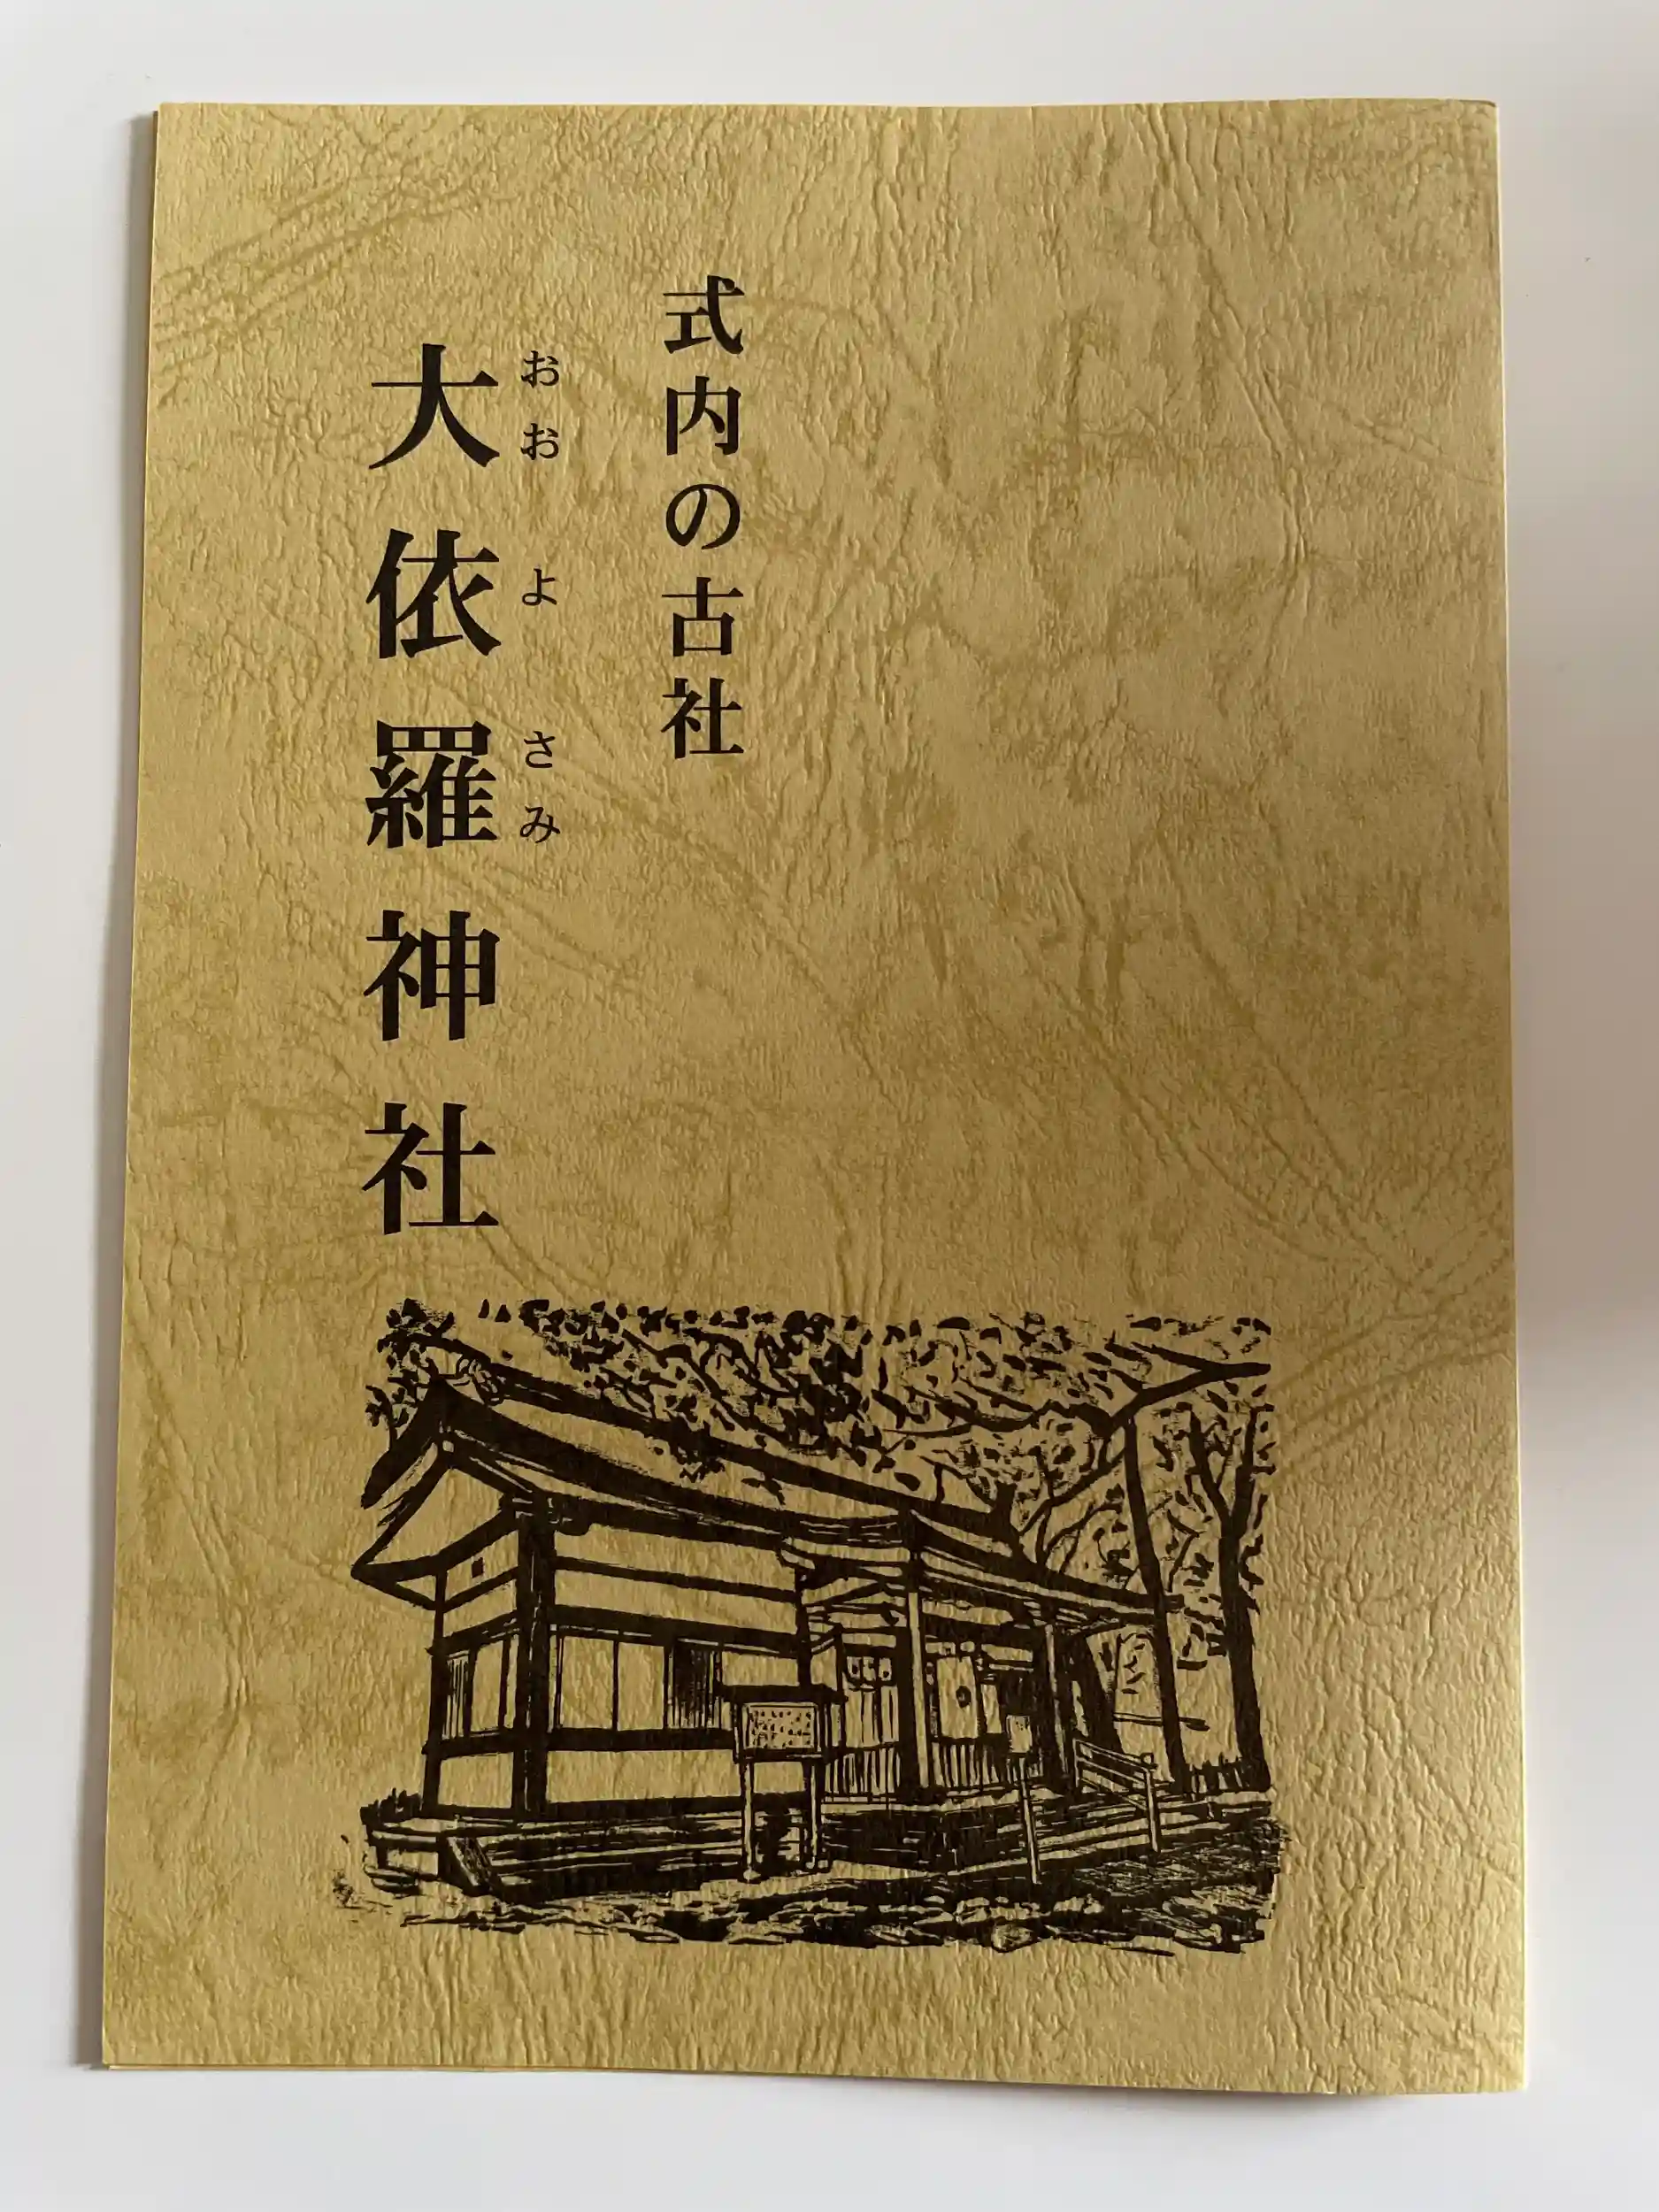 式内の古社
おおよさみ
大依羅神社